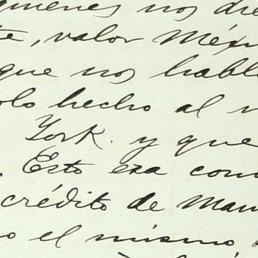 quienes nos die
te, valor Méxi
que nos habl
olo hecho al
York. y que
. Esto era com
crédito de Mau
o el mismo